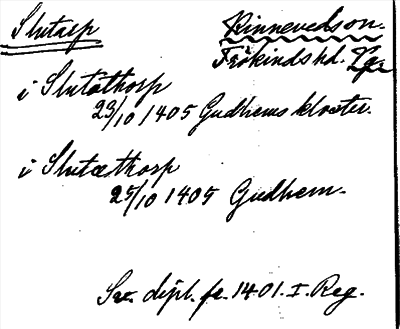 Slutarp
Kinneveds sn.
Frökinds hd. Vg.
i Slutåthorp
23/10 1405 Gudhems kloster.
i Slutæthorp
25/10 1405 Gudhem.
Sv. dipl. fr. 1401. I. Reg.